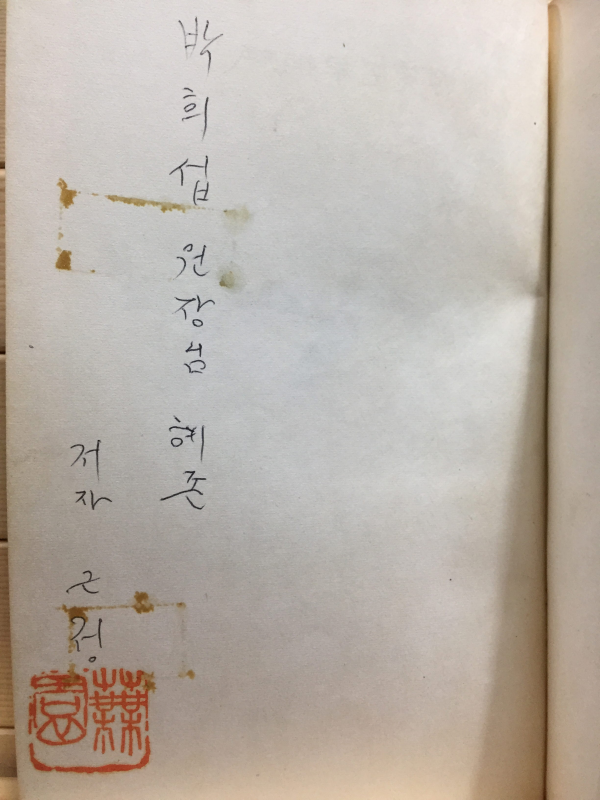 박희섭 원장님 혜존
저자 근정
園